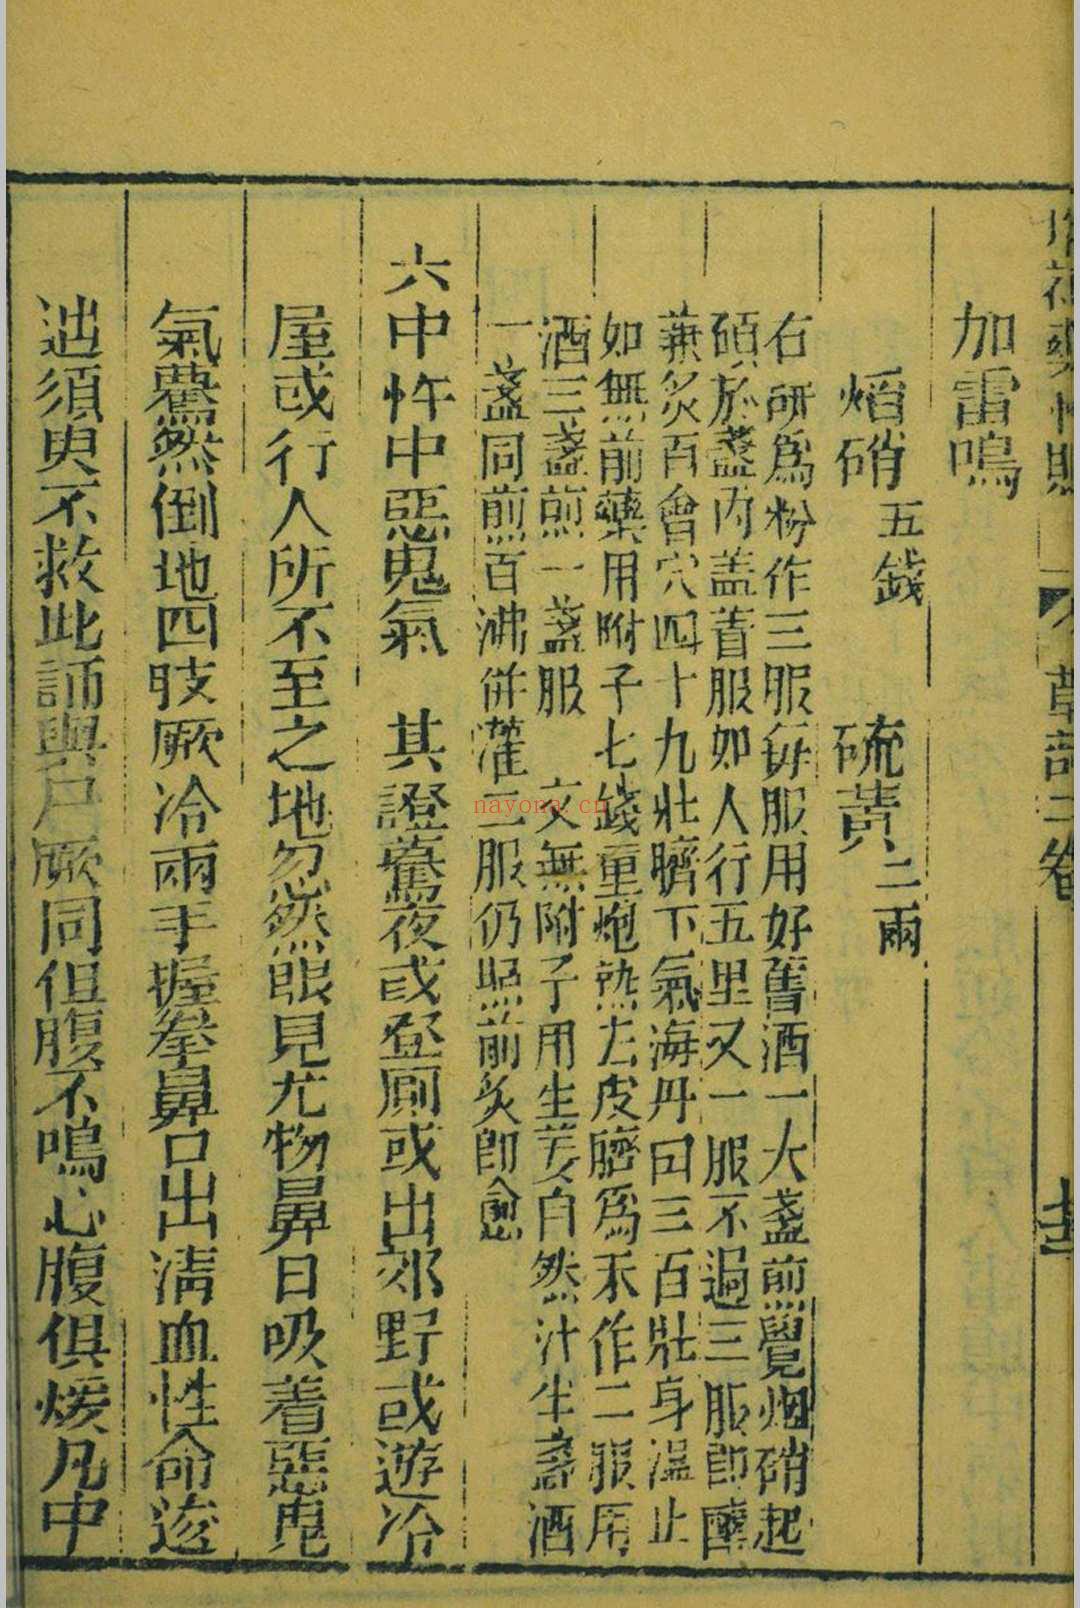 加雷鳴
焰硝五錢 硫黃二兩
右研爲粉作三服每服用好舊酒一大盞煎覺烟硝起
碩於盞內盖着服如人行五里又一服不過三服即醒
兼炙百會穴四十九壯臍下氣海丹田三百壯身溫止
如無前藥用附子七錢重炮熟去皮臍爲末作二服用
酒三盞煎一盞服 又無附子用生姜自然汁半盞酒
一盞同煎百沸併灌二服仍照前炙即愈
六中忤中惡鬼氣 其證驀夜或登厠或出郊野或遊冷
屋或行人所不至之地忽然眼見尤物鼻口吸着惡鬼
氣驀然倒地四肢厥冷兩手握拳鼻口出淸血性命逡
廵須臾不救此証與尸厥同但腹不鳴心腹俱煖凡中
草部二卷
nayona.cn